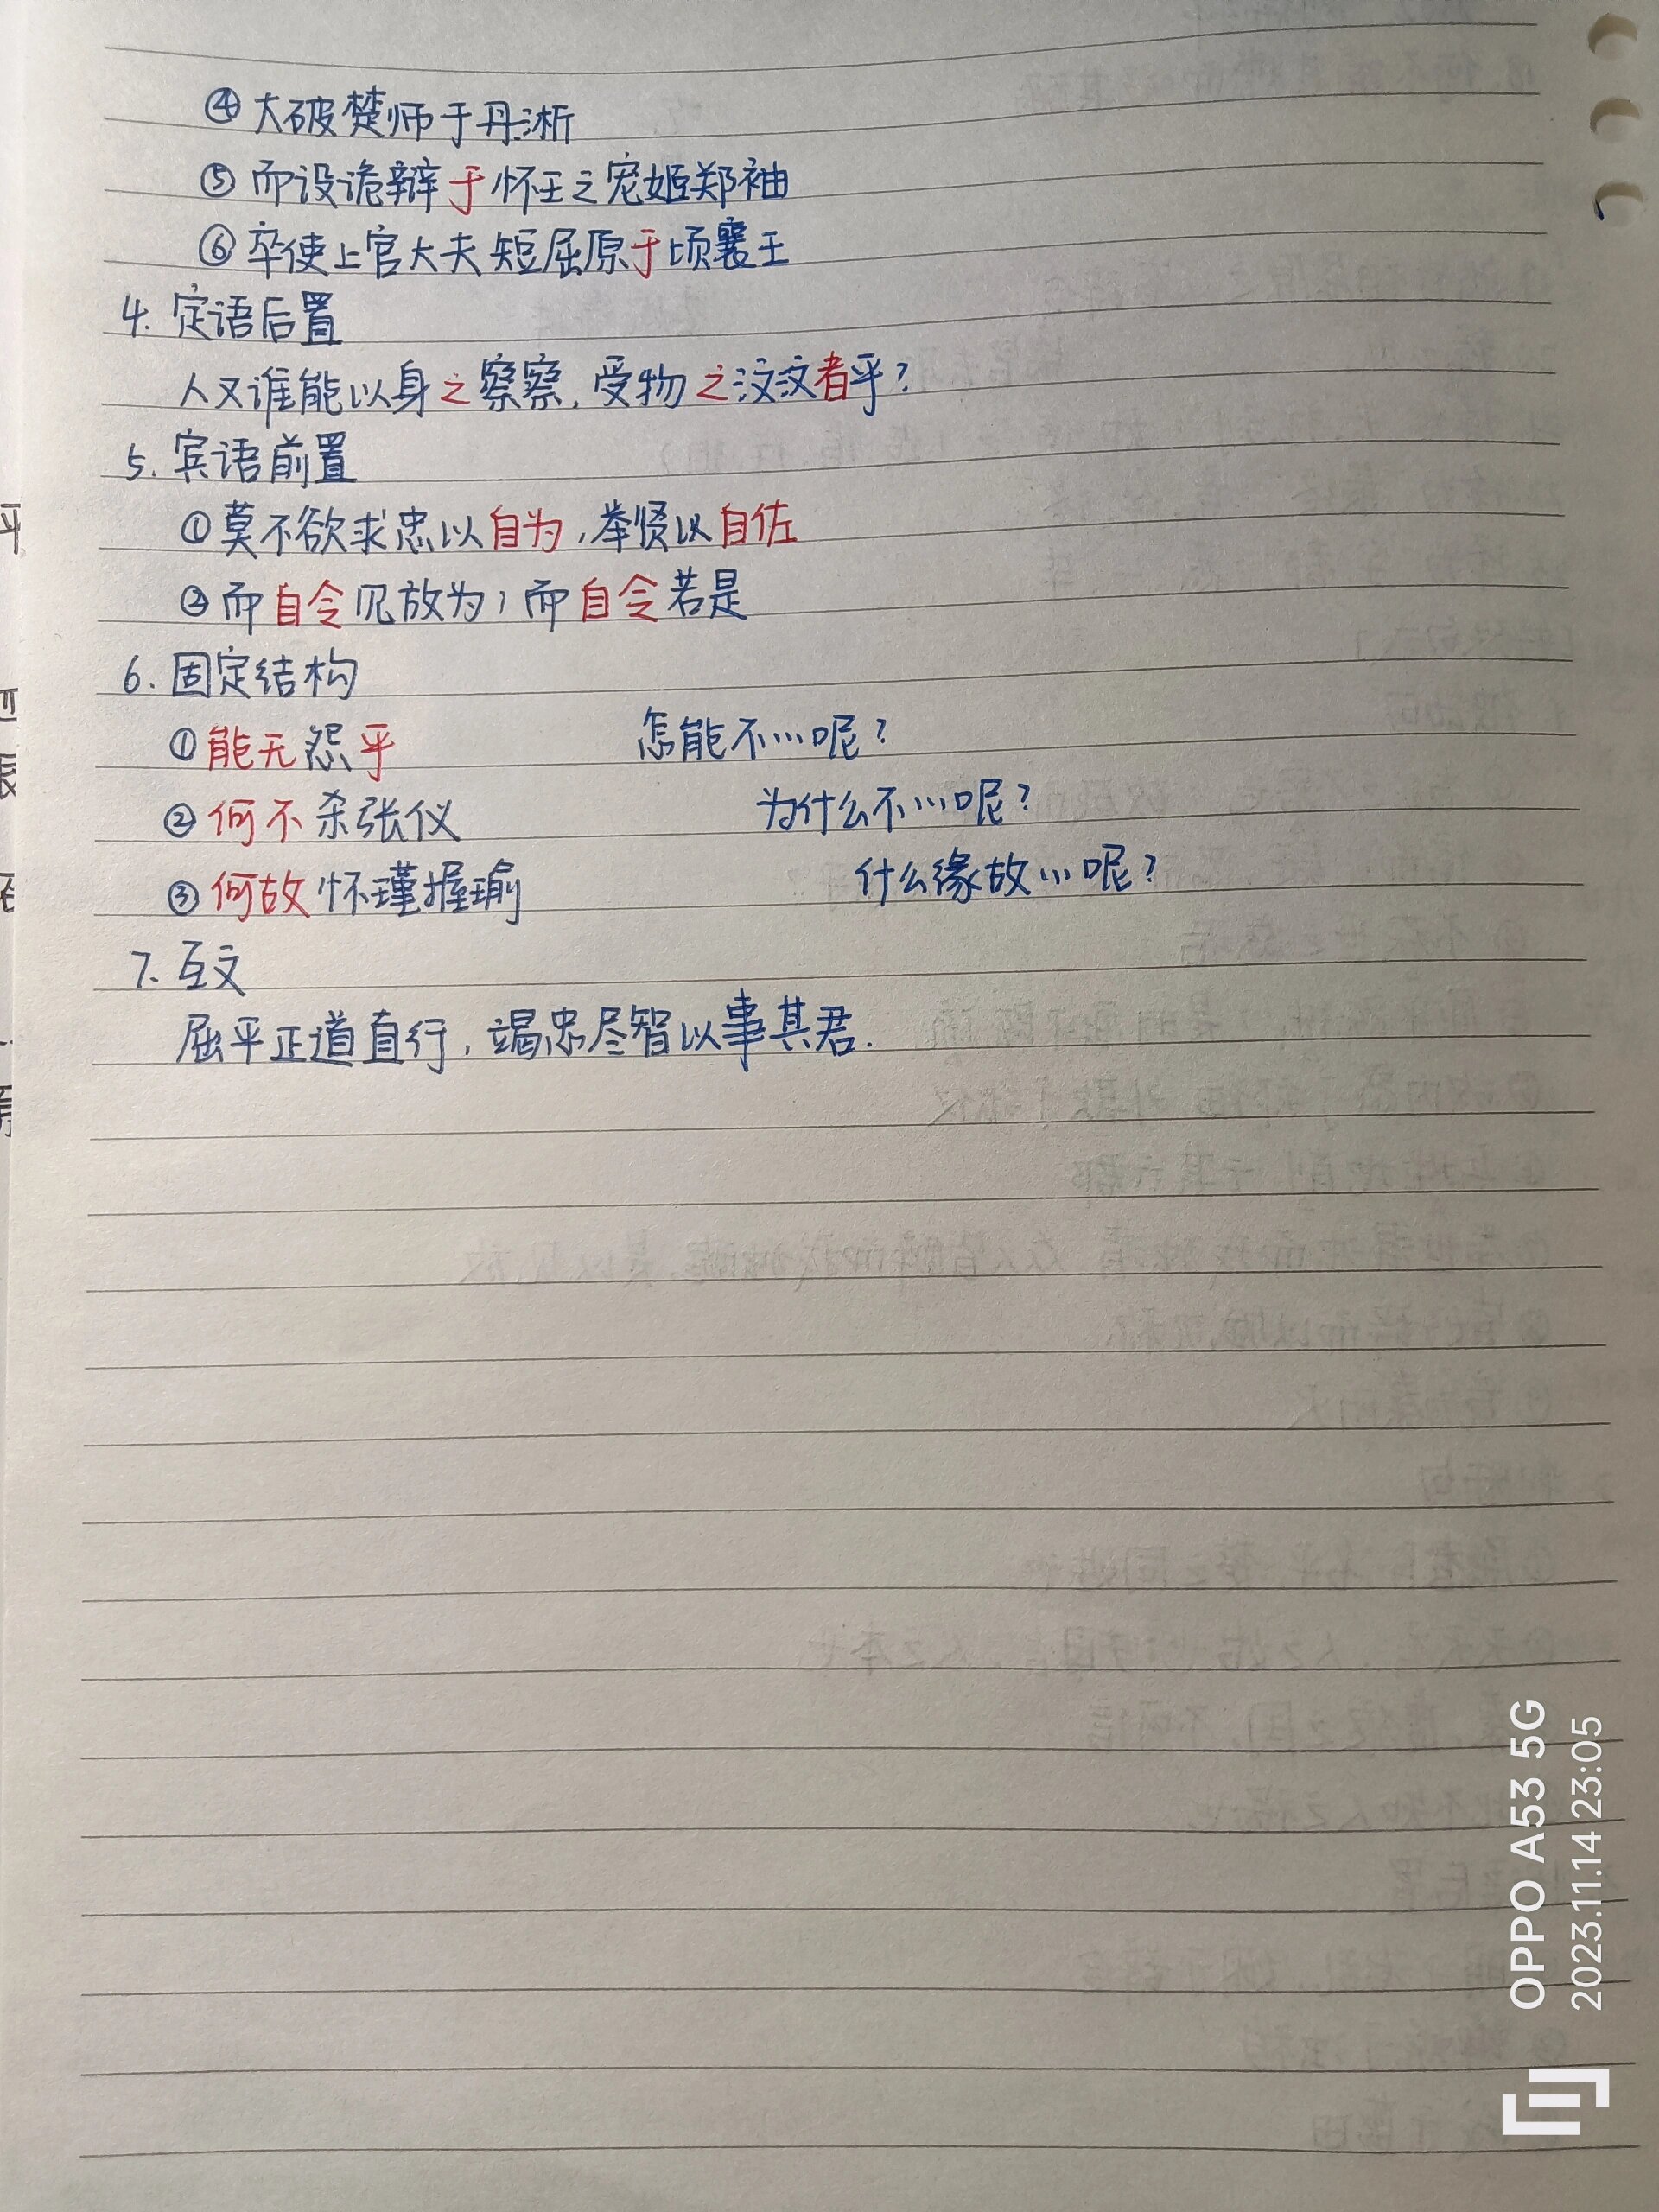 ④大破楚师于丹淅
⑤而设诡辩于怀王之宠姬郑袖
⑥卒使上官大夫短屈原于顷襄王
4. 定语后置
人又谁能以身之察察，受物之汶汶者乎？
5. 宾语前置
①莫不欲求忠以自为，举贤以自佐
②而自令见放为；而自令若是
6. 固定结构
①能无怨乎 怎能不…呢？
②何不杀张仪 为什么不…呢？
③何故怀瑾握瑜 什么缘故…呢？
7. 互文
屈平正道直行，竭忠尽智以事其君.
OPPO A53 5G
2023.11.14 23:05